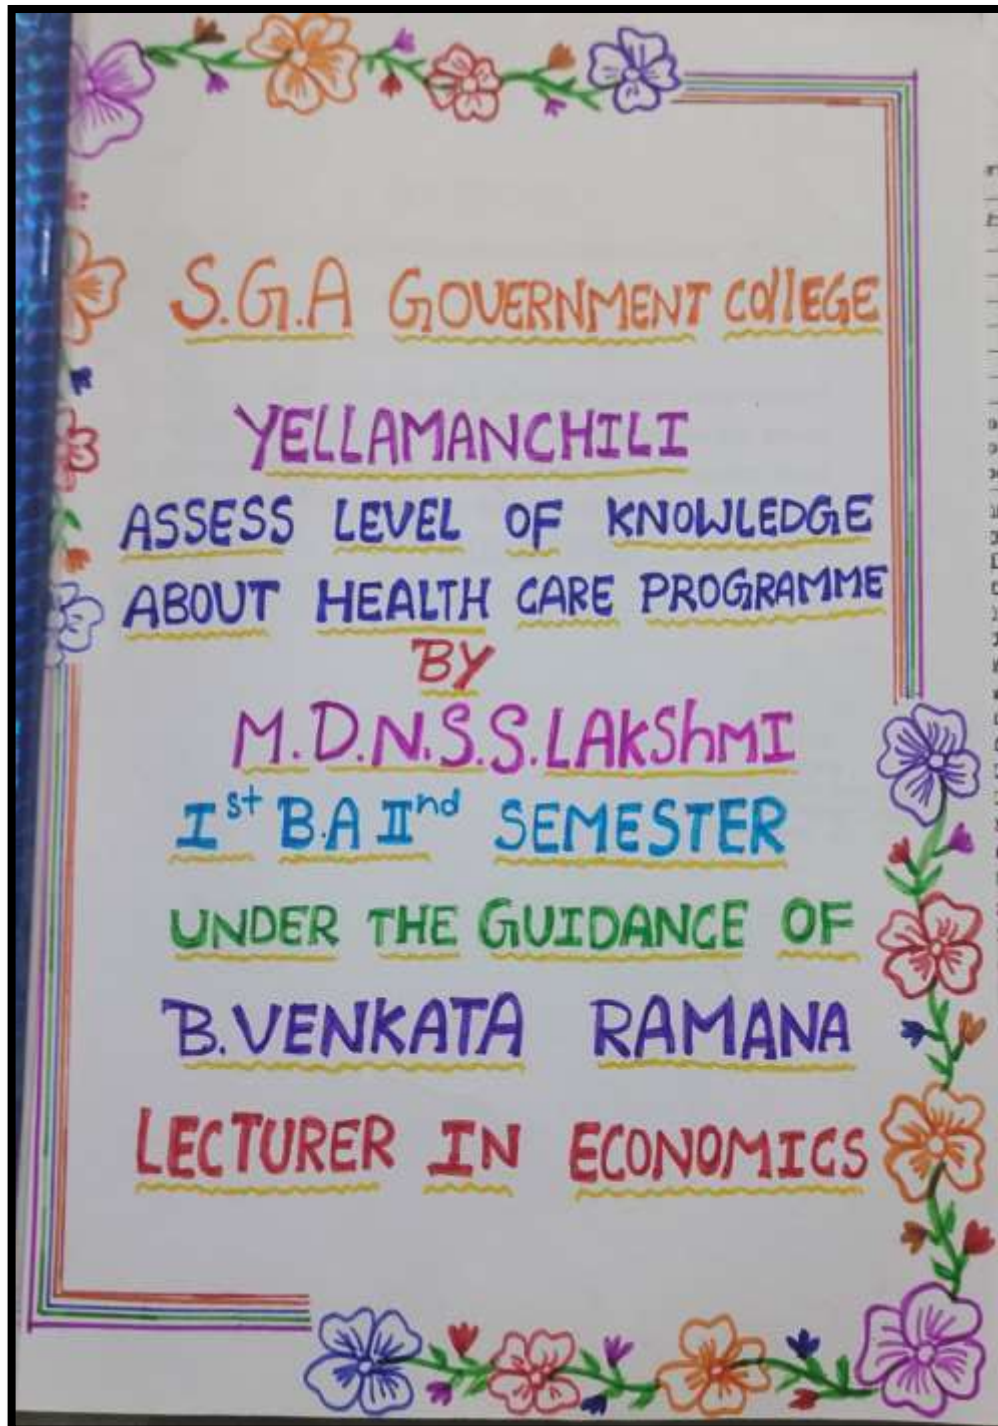 S.G.A GOVERNMENT COllEGE
YELLAMANCHILI
ASSESS LEVEL OF KNOWLEDGE
ABOUT HEALTH CARE PROGRAMME
BY
M.D.N.S.S.LAKShMI
Ist B.A IInd SEMESTER
UNDER THE GUIDANCE OF
B.VENKATA RAMANA
LECTURER IN ECONOMICS